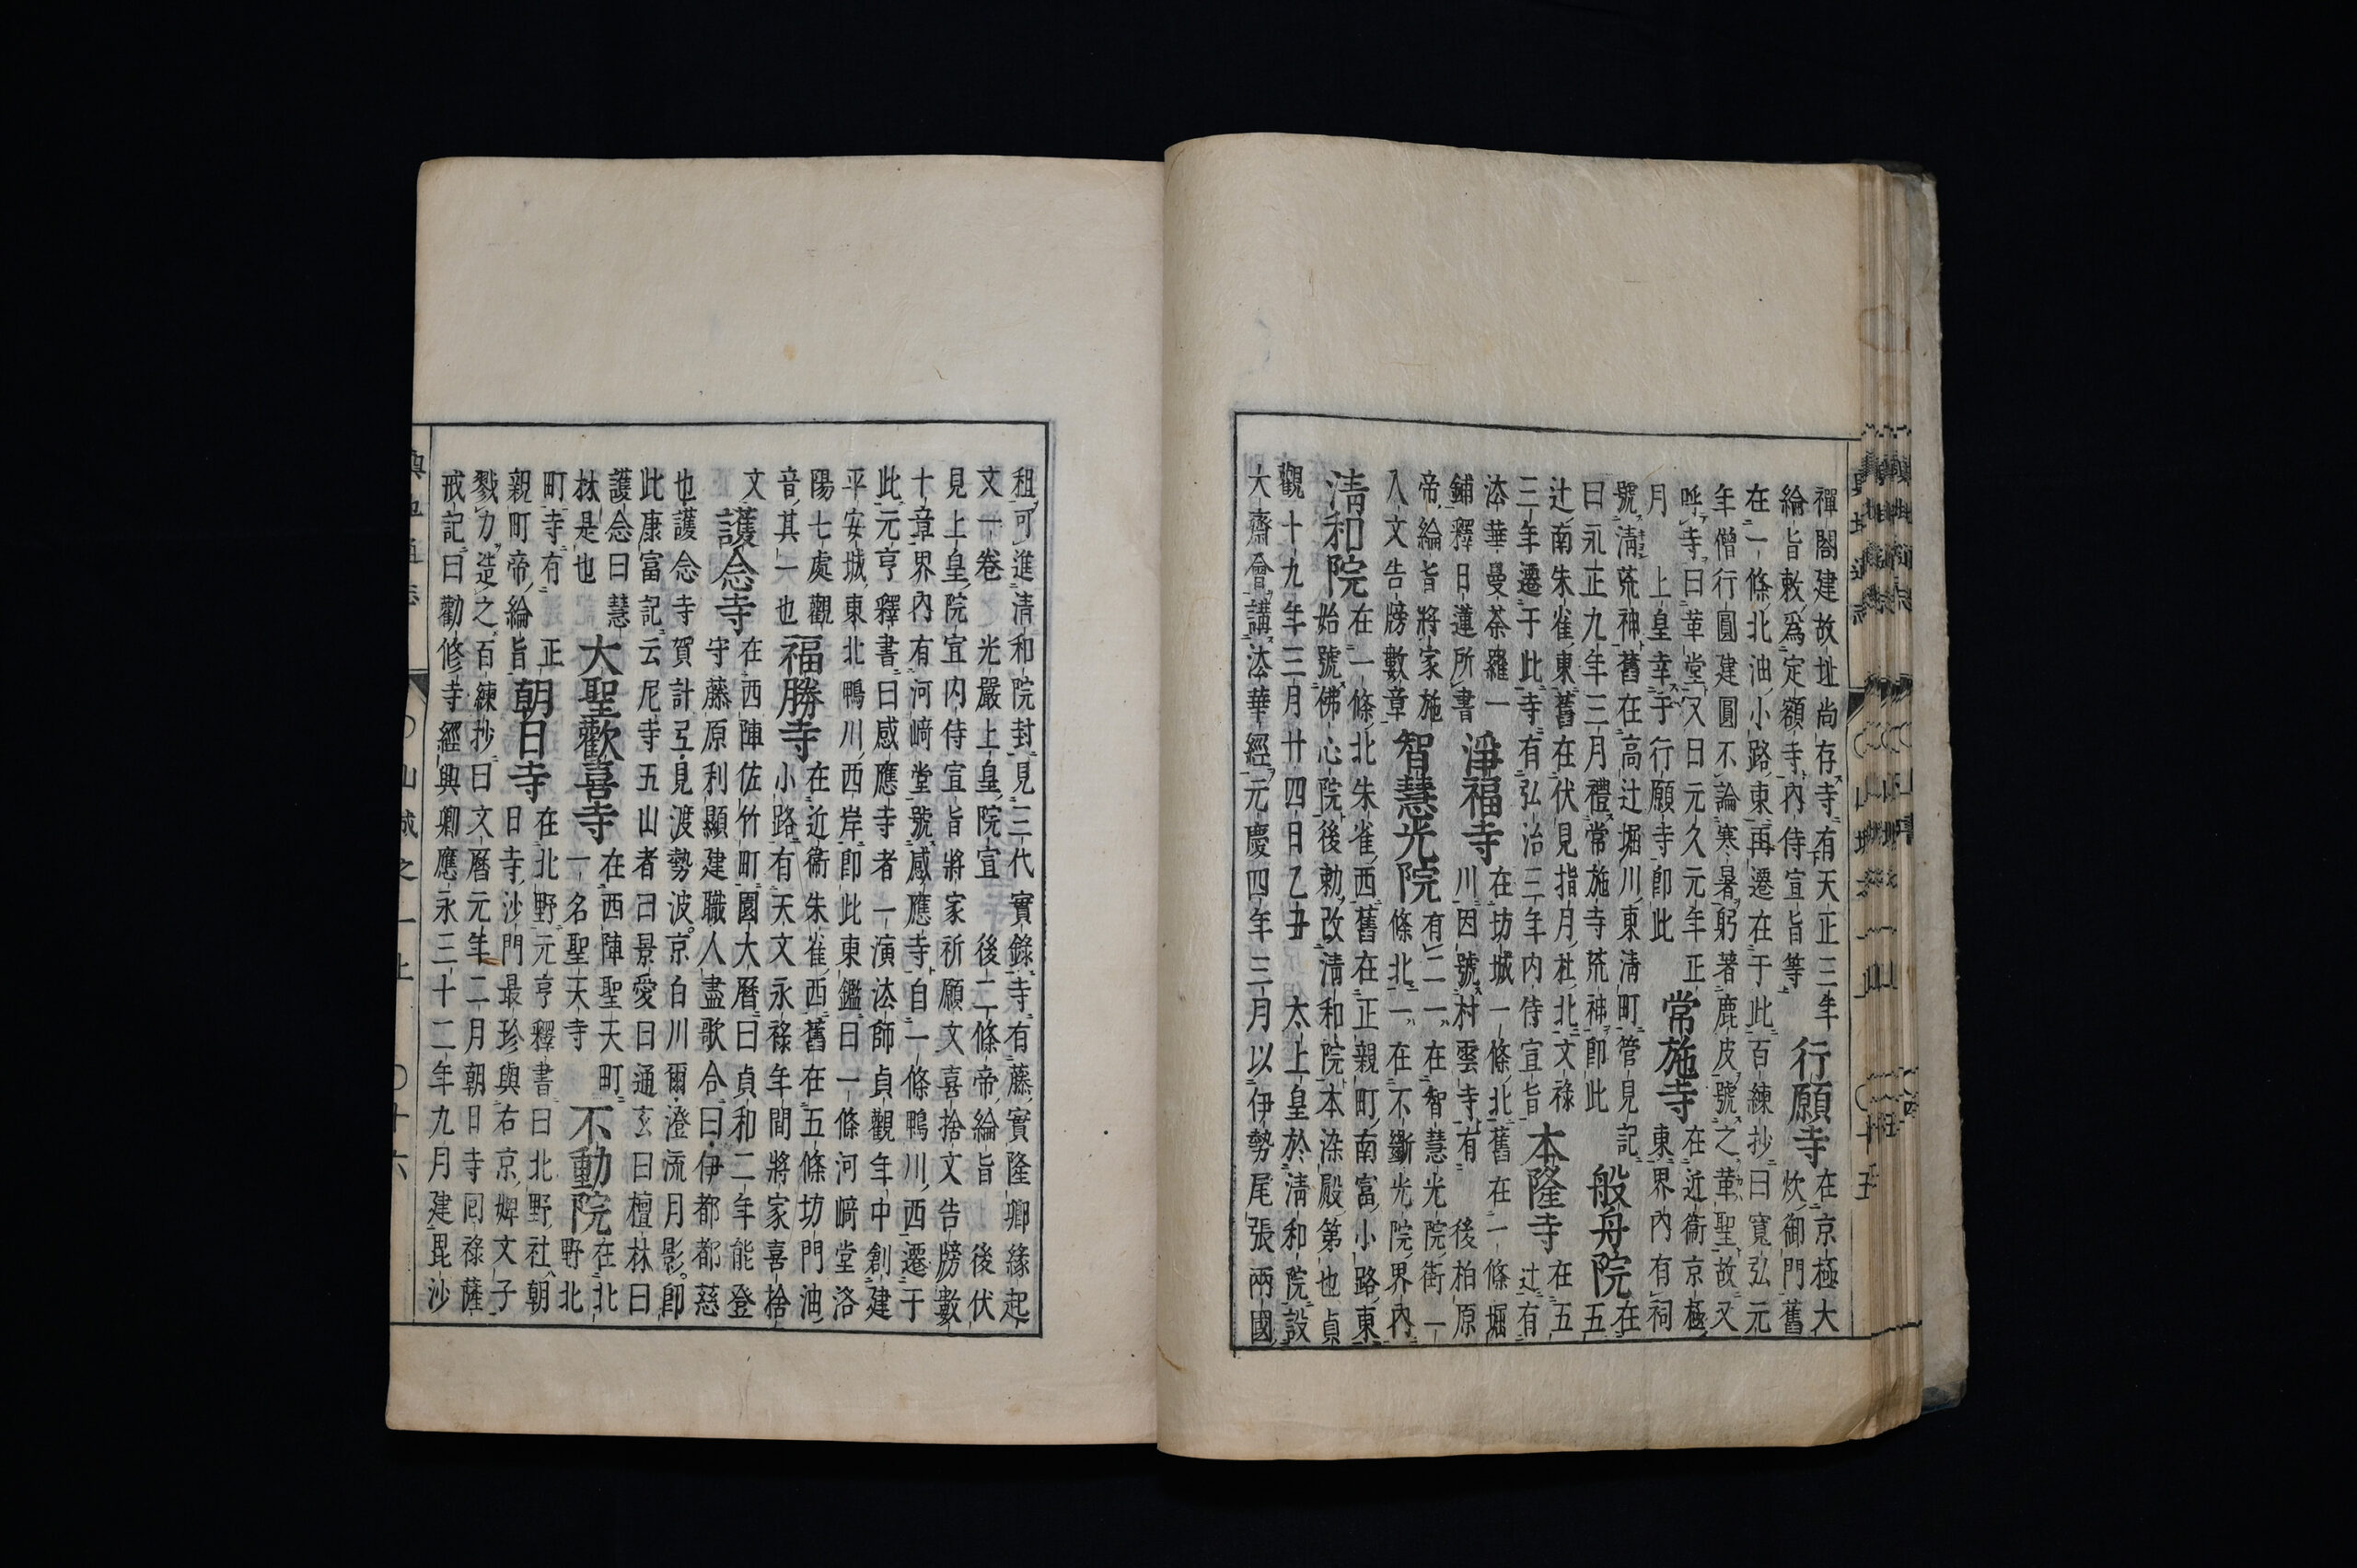 禪閤建故址尚存寺有天正三年
綸旨敕爲定額寺内侍宣旨等
行願寺
在京極大
炊御門舊
在一條北油小路東再遷在于此百練抄曰寬弘元
年僧行圓建圓不論寒暑躬著鹿皮號之革聖故又
呼寺曰革堂又曰元久元年正
月 上皇幸于行願寺卽此
常施寺
在近衞京極
東界内有祠
號淸荒神舊在高辻堀川東淸町管見記
曰永正九年三月禮常施寺荒神卽此
般舟院
在
五
辻南朱雀東舊在伏見指月杜北文禄
三年遷于此寺有弘治三年内侍宣旨
本隆寺
在五
辻有
法華曼荼羅一
鋪釋日蓮所書
淨福寺
在坊城一條北舊在一條堀
川因號村雲寺有 後柏原
帝綸旨將家施
入文告牓數章
智慧光院
有二一在智慧光院街一
條北一在不斷光院界内
淸和院
在一條北朱雀西舊在正親町南富小路東
始號佛心院後勅改淸和院本染殿第也貞
觀十九年三月廿四日乙丑 太上皇於淸和院設
大齋會講法華經元慶四年三月以伊勢尾張兩國
租可進淸和院封見三代實錄寺有藤實隆卿緣起
文一卷 光嚴上皇院宣 後二條帝綸旨 後伏
見上皇院宣内侍宣旨將家祈願文喜捨文告牓數
十章界内有河﨑堂號感應寺自一條鴨川西遷于
此元亨釋書曰感應寺者一演法師貞觀年中創建
平安城東北鴨川西岸卽此東鑑曰一條河﨑堂洛
陽七處觀
音其一也
福勝寺
在近衞朱雀西舊在五條坊門油
小路有天文永禄年間將家喜捨
文
護念寺
在西陣佐竹町園大曆曰貞和二年能登
守藤原利顯建職人盡歌合曰伊都都慈
也護念寺賀計弖見渡勢波京白川爾澄流月影卽
此康富記云尼寺五山者曰景愛曰通玄曰檀林曰
護念曰慧
林是也
大聖歡喜寺
在西陣聖天町
一名聖天寺
不動院
在北
野北
町寺有 正
親町帝綸旨
朝日寺
在北野元亨釋書曰北野社朝
日寺沙門最珍與右京婢文子
戮力造之百練抄曰文曆元年二月朝日寺回禄薩
戒記曰勸修寺經興卿應永三十二年九月建毘沙
山城之一上 〇十六